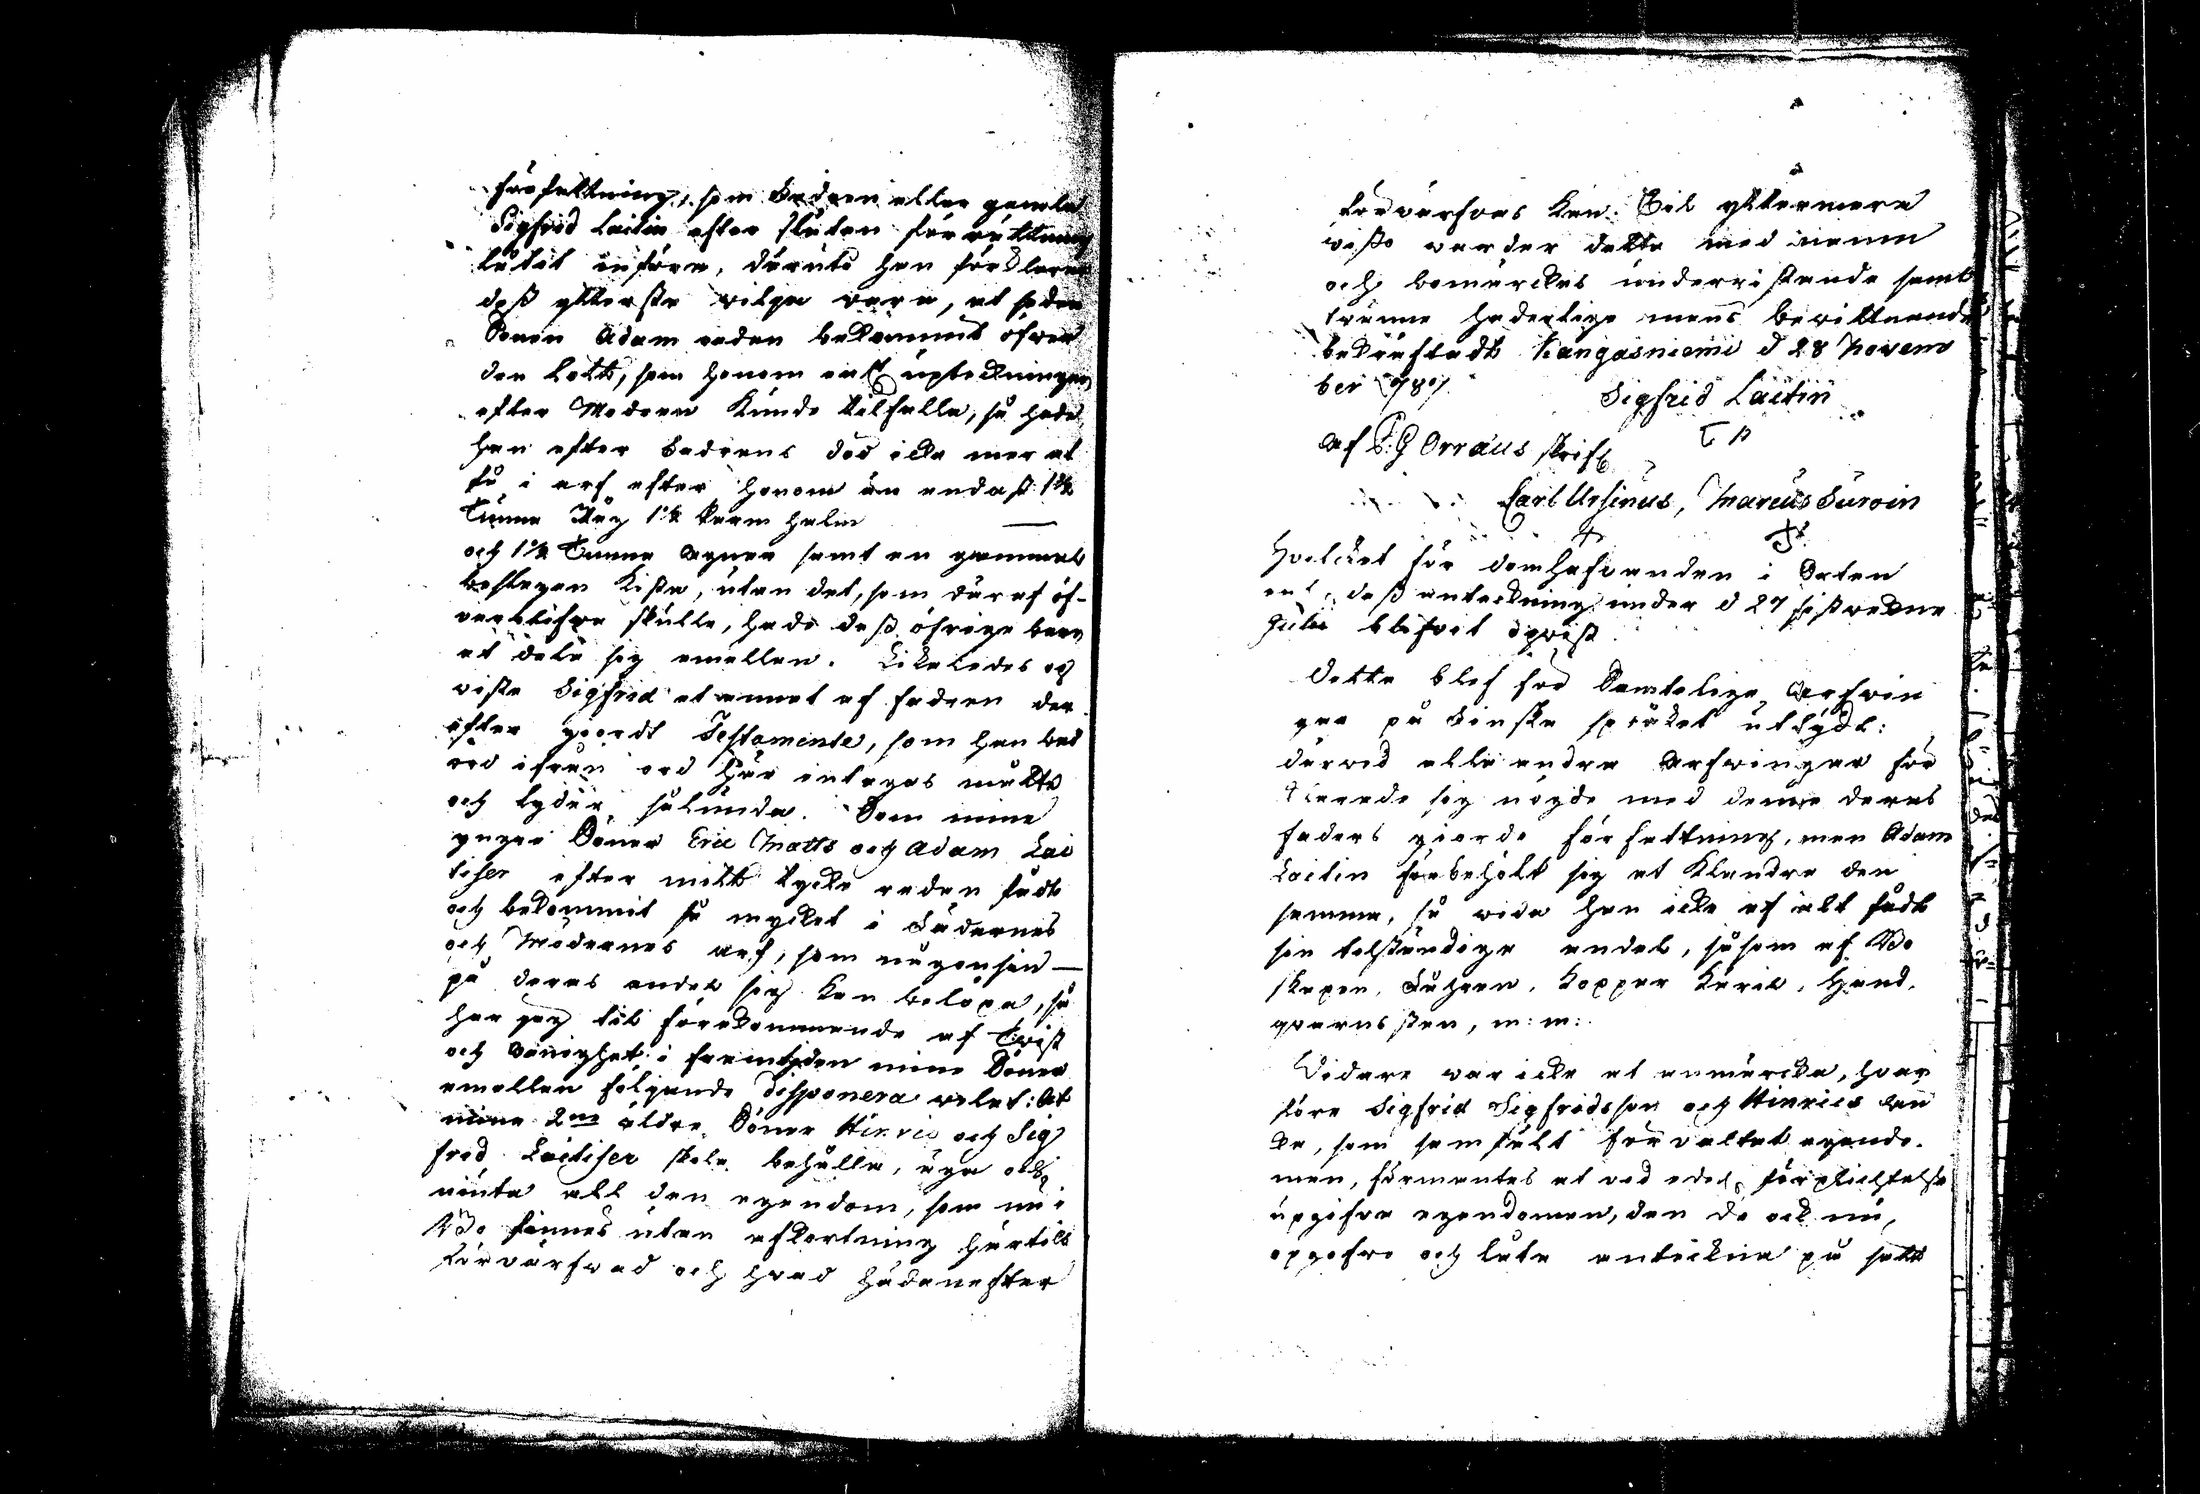 författning, som Fadren eller gamla
Sigfrid Laitin efter sluten förrättning
låtit införa, däruti han förklarat
deß ytterste wilja vara, at sedan
Sonen Adam redan bekommit öfver
den Lott, som honom enl upteckningen
efter Modren kunde tilfalla, så hade
han efter Fadrens död icke mer at
få i arf efter honom än endast 1 1/2
Tunna Råg 1 1/2 Karm halm —
och 1 1/2 Tunna Agnar samt en gammal
beslagen Kista, utan det, som däraf öf-
verblifva skulle, hade deß öfrige barn
at dela sig emellan. Likaledes op
viste Sigfrid et annat af fadren der
efter giordt Testamente, som han bad
ord ifrån ord här intagas måtte
och lyder sålunda. Som mine
yngre Söner Eric Matts och Adam Lai
tiser efter mitt tycke redan fådt
och bekommit så mycket i Fädernes
och Mödernes arf, som någonsin —
på deras andel sig kan belöpa, så
har jag til förekommande af Twist
och Oenighet i framtiden mine Söner
emellan följande disponera velat: At
mine 2ne äldre Söner Hinric och Sig
frid Laitiser skola behålla, äga och
niuta all den egendom, som nu i
Bo finnes utan afkortning härtils
förvärfvad och hvad hädanefter
förvärfvas kan. Til yttermera
visso varder detta med namn
och bomärckes underristande samt
tvänne hederlige mäns bevittnande
bekräftadt Kangasniemi d 28 Novem
ber 1787. Sigfrid Laitin
af P: G Orræus skrift
Carl Ursinus, Marcus Suroin
Hvilcket för domhafvanden i Orten
enl. deß anteckning under d 27 sistvekne
Julii blifvet opvist.
Detta blef för Samtelige Arfwin
gar på Finska språket uttydt:
därvid alla andra Arfwingar för
klarade sig nögde med denna deras
faders giorde författning, men Adam
Laitin förbehölt sig at klandra den
samma, så vida han icke af alt fådt
sin tolständige andel, såsom af Bo
skapen, Fåhren, Koppar Käril, Hand.
qvarns sten, m: m:
Vidare var icke at anmärcka, hvar
före Sigfrid Sigfridsson och Hinrics Än
ka, som samfält förvaltat egendo-
men, förmantes at vid edel. förplichtelse
upgifva egendomen, den de ock nu,
opgofvo och läto anteckna på sätt